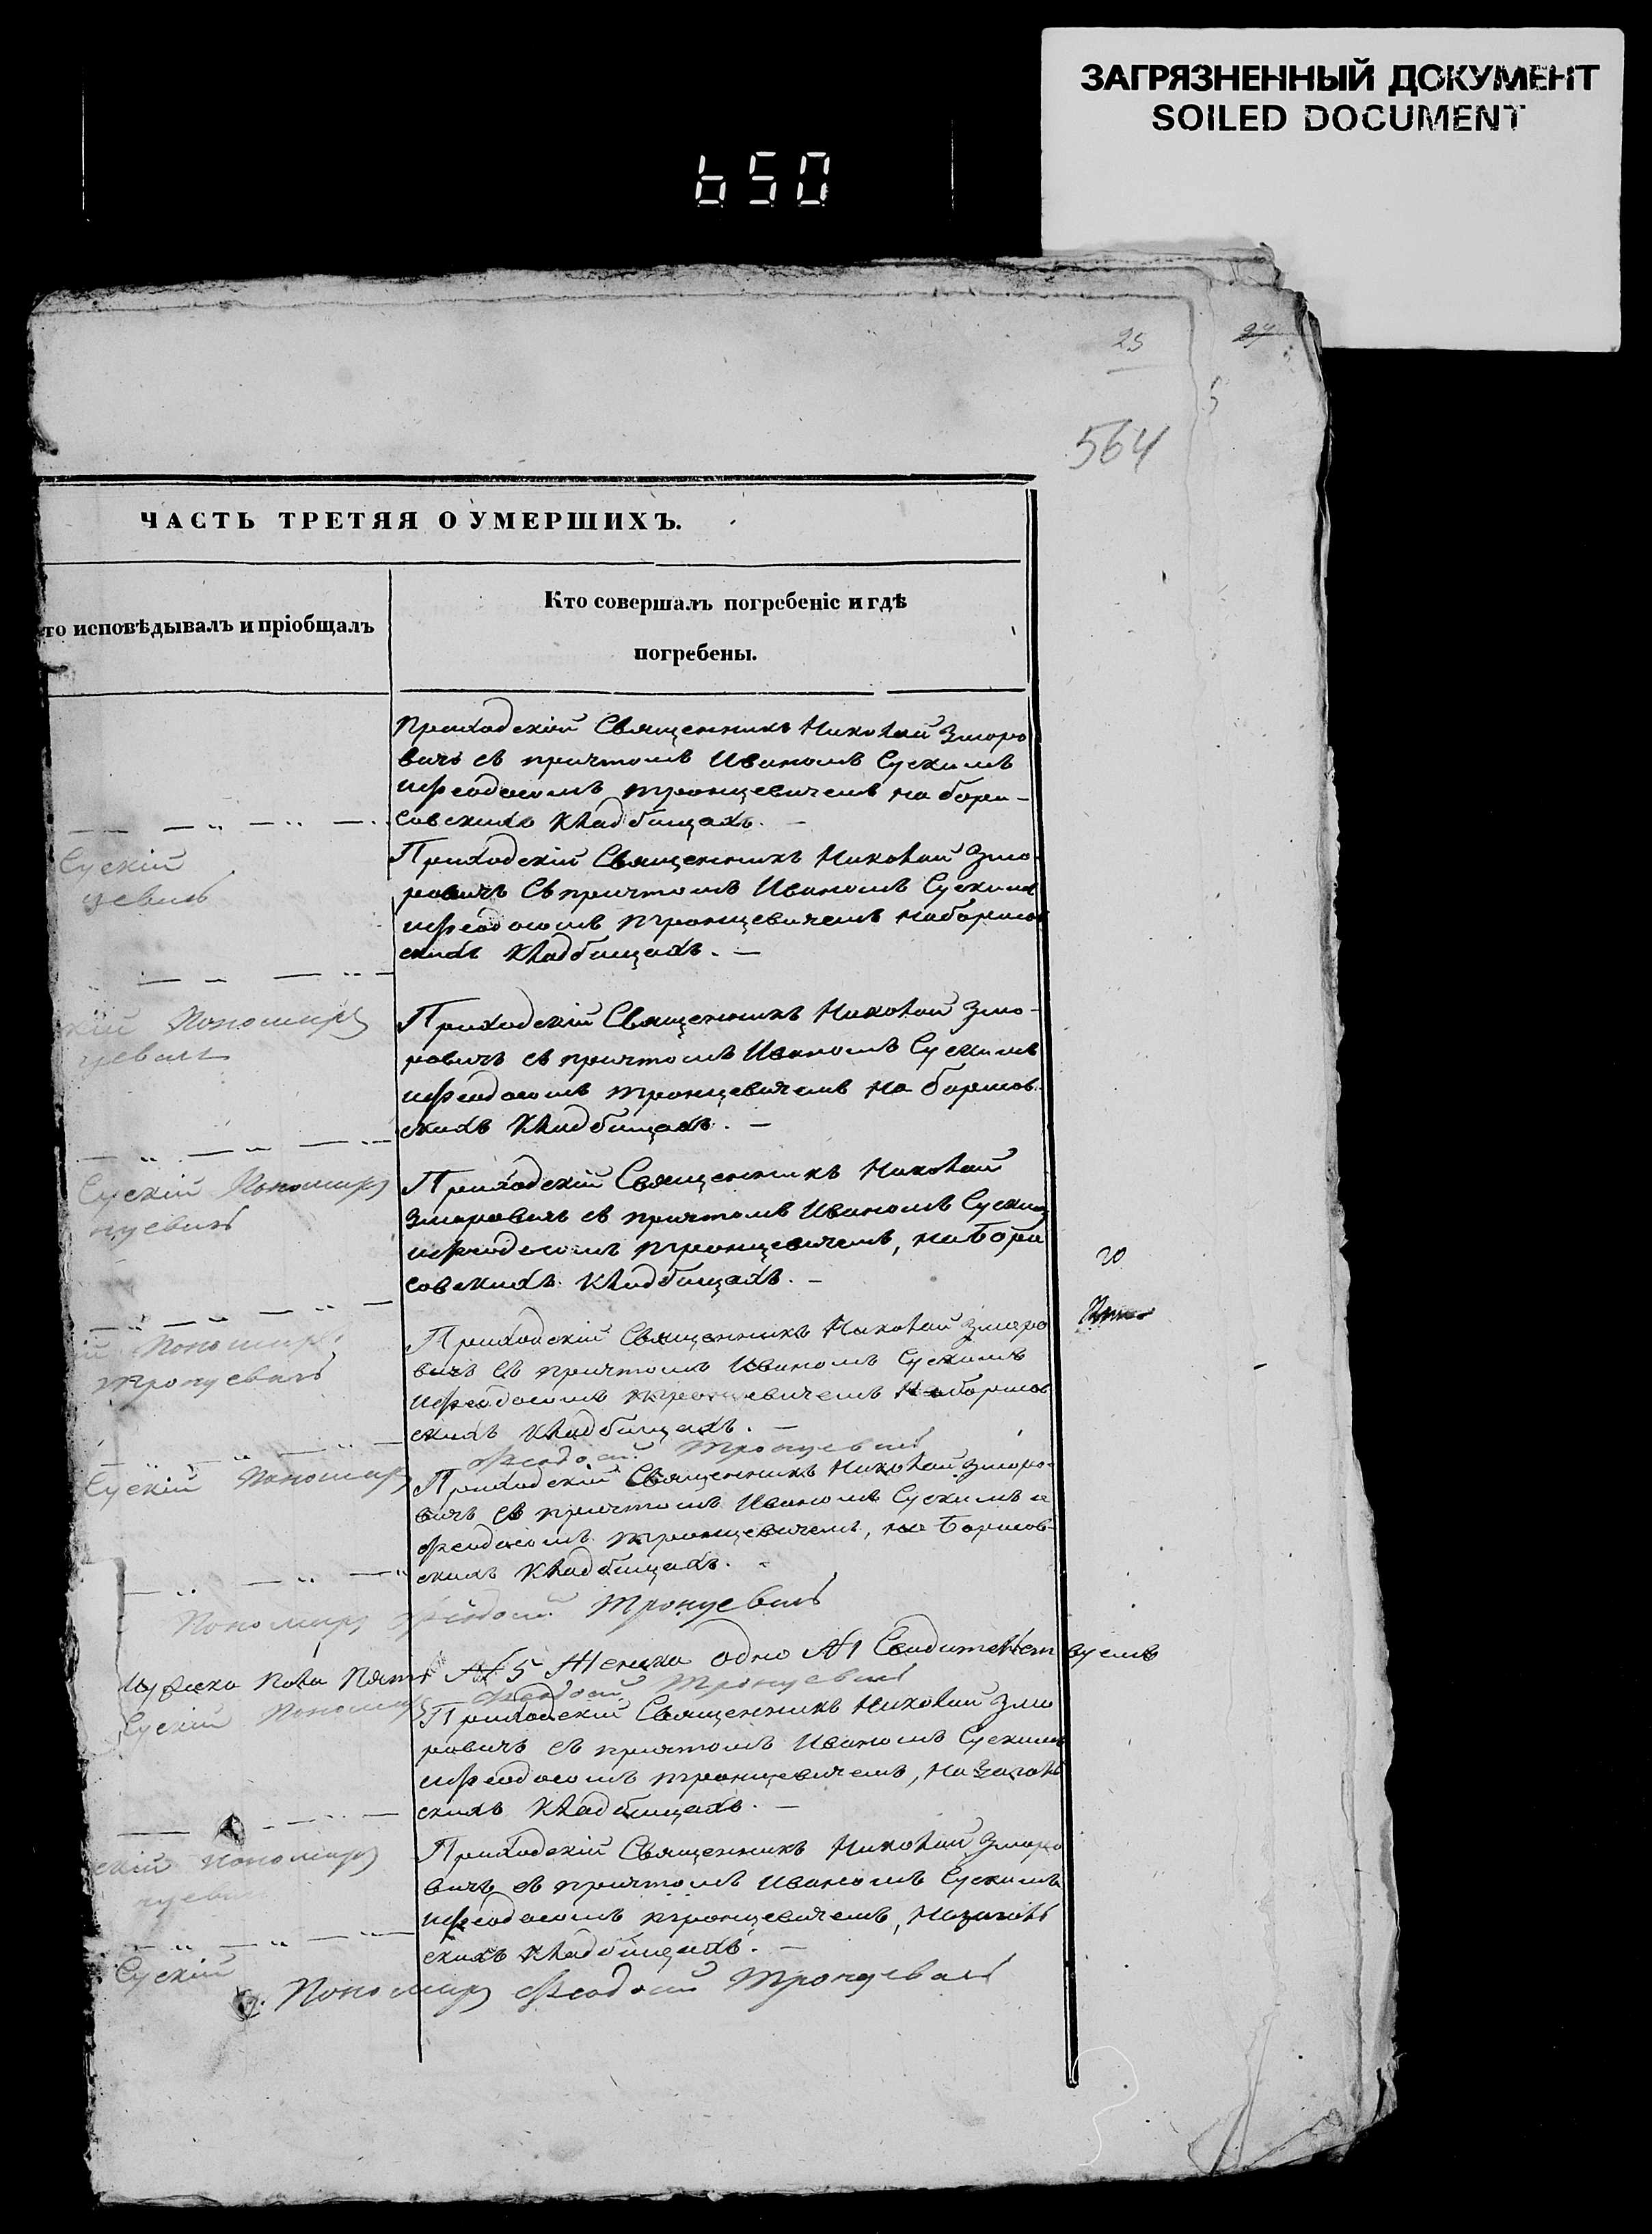 ЗАГРЯЗНЕННЫЙ ДОКУМЕНТ
SOILED DOCUMENT
650
25
27
564
ЧАСТЬ ТРЕТЯЯ О УМЕРШИХЪ.
то исповѣдывалъ и пріобщалъ
Кто совершалъ погребеніе и гдѣ
погребены.
Приходскій Священникъ Николай Зморо
вичъ съ причтомъ Иваномъ Сускимъ
иѲеодосомъ Тронцевичемъ на бори-
совскихъ кладбищахъ. —
Суский
цевичъ
Приходскій Священникъ Николай Змо-
ровичъ Съ причтомъ Иваномъ Сускимъ
иѲеодосомъ Тронцевичемъ наборисов
скихъ кладбищахъ. —
кій Пономарь
цевичъ
Приходскій Священникъ Николай Змо-
ровичъ съ причтомъ Иваномъ Сускимъ
иѲеодосомъ Тронцевичемъ на борисов-
скихъ кладбищахъ. —
Сускій Пономарь
нцевичъ
Приходскій Священникъ Николай
Зморовичъ съ причтомъ Иваномъ Сускимъ
иѲеодосомъ Тронцевичемъ, на Бори
совскихъ кладбищахъ. —
20
ій Пономарь
Тронцевичъ
Приходскій Священникъ Николай Зморо
вичъ съ причтомъ Иваномъ Сускимъ
иѲеодосомъ Тронцевичемъ наборисов
скихъ кладбищахъ. —
Сускій Пономарь Ѳеодосій Тронцевичъ
Приходскій Священникъ Николай Зморо-
вичъ съ причтомъ Иваномъ Сускимъ и
Ѳеодосомъ Тронцевичемъ, на Борисов-
скихъ кладбищахъ. -
Пономарь Ѳеодосій Тронцевичъ
Мужеска пола пять № 5 Женска одно № 1 Свидетельствуемъ
Сускій Пономарь Ѳеодосій Тронцевичъ
Приходскій Священникъ Николай Змо
ровичъ съ причтомъ Иваномъ Сускимъ
иѲеодосомъ Тронцевичемъ,
скихъ кладбищахъ. —
скій Пономарь
нцевичъ
Приходскій Священникъ Николай Зморо
вичъ съ причтомъ Иваномъ Сускимъ
иѲеодосомъ Тронцевичемъ,
скихъ кладбищахъ. —
Сускій
Пономарь Ѳеодосій Тронцевичъ